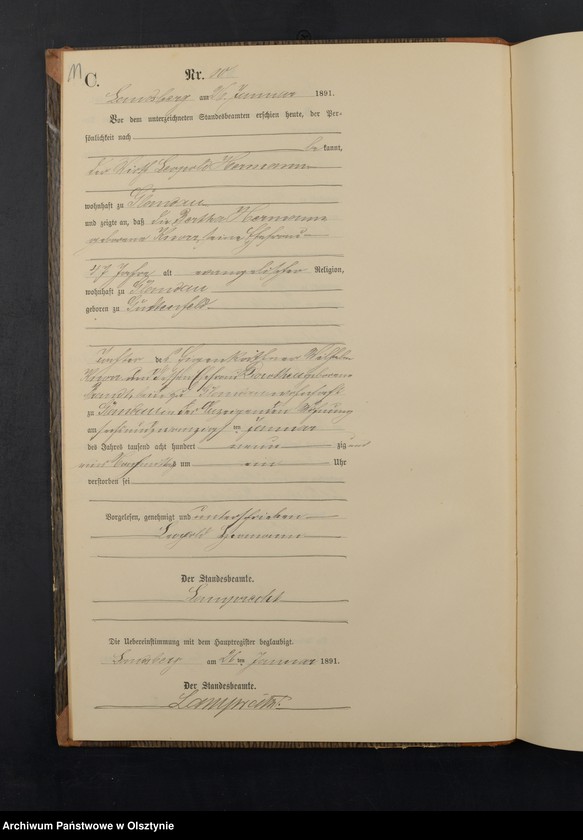 M
C.
Nr. 10
Landsberg am 26. Januar 1891.
Vor dem unterzeichneten Standesbeamten erschien heute, der Per-
sönlichkeit nach
be kannt,
der Wirth Leopold Hermann
wohnhaft zu
und zeigte an, daß die Bertha Hermann
geborene Knorr, seine Ehefrau
47 Jahre alt evangelischer Religion,
wohnhaft zu
geboren zu
Tochter des Wilhelm
Knorr und dessen Ehefrau Dorothea geborene
zu in der Wohnung
am sechsundzwanzigsten Januar
des Jahres tausend acht hundert neun zig und
eins Nachmittags um ein Uhr
verstorben sei
Vorgelesen, genehmigt und unterschrieben
Leopold Hermann
Der Standesbeamte.
Lamprecht
Die Uebereinstimmung mit dem Hauptregister beglaubigt.
Landsberg am 26ten Januar 1891.
Der Standesbeamte.
Lamprecht
Archiwum Państwowe w Olsztynie